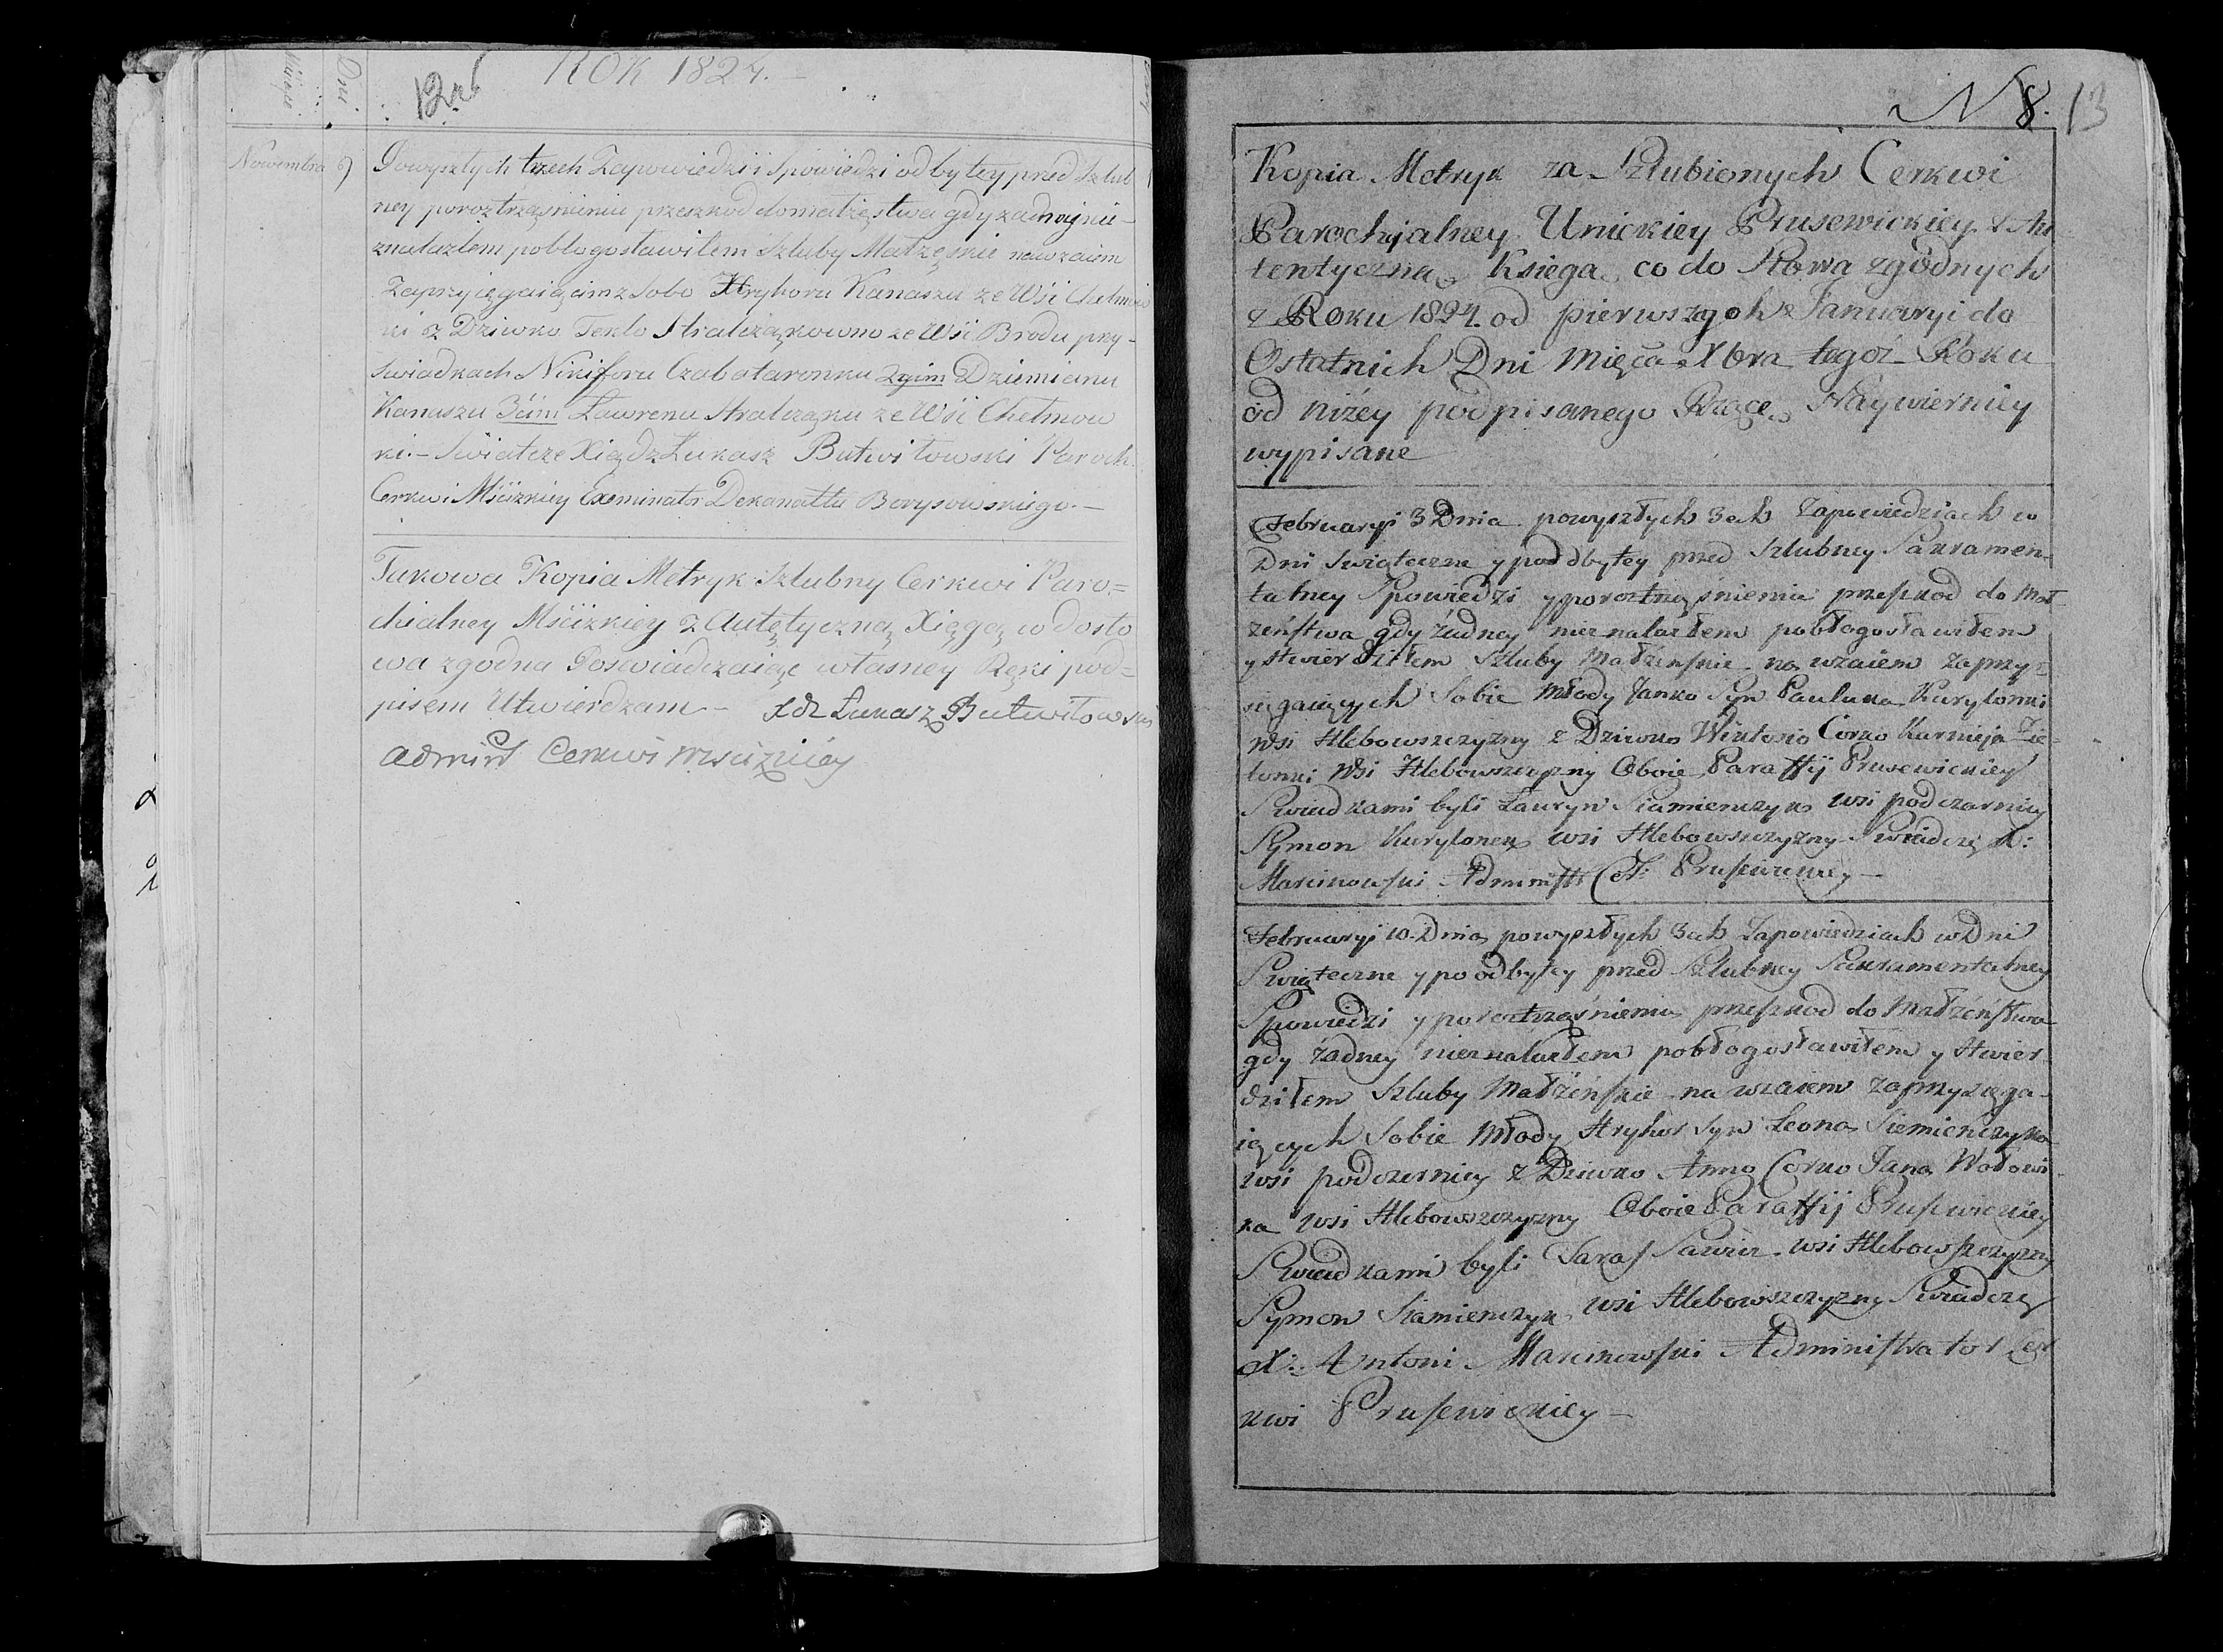 ROK 1824.
Miesiąc
Dni
12 об
Nowembra 9
Powyszłych trzech Zapowiedzi i Spowiedzi odbytey przed Szlub
ney poroztrząsnieniu przeszkod domałżęstwa gdy żadnaj nie
znalazłem pobłogosławiłem Szluby Małżęskie nawzaiem
Zaprzyięgaiącim z Sobo Hryhoru Kanaszu ze Wsi Chełmow
ki z Dziwko Teklo Stralcząkowno ze Wsi Brodu przy-
Swiadkach Nikiforu Czabataronku 2gim Dziemianu
Kanaszu 3cim Ławrenu Stralcząku ze Wsi Chełmow
ki.- Swiatcze Xiądz Łukasz Butwiłowski Paroch.
Cerkwi Mścizkiey Exeminator Dekanattu Borysowskiego.-
Takowa Kopia Metryk Szlubny Cerkwi Paro=
chialney Mścizkiey z Autętyczną Xięgą co dosło
wa zgodna Poswiadczaiąc własney Ręki pod=
pisem Utwierdzam - Xdz Łukasz Butwiłowski
Admint Cerkwi Mscizkiey
N 8. 13
Kopia Metryk za Szlubionych Cerkwi
Parochijalney Unickiey Prusewickiey z Au
tentyczna Ksiega co do Słowa zgodnych
z Roku 1824. od pierwszgoh Januaryi do
Ostatnich Dni Mięca Xbra tegoż Roku
od niżey podpisanego Rącę Naywierniey
wypisane
Februaryi 3 Dnia powyszłych 3ch Zapowiedziach w
Dni Swiąteczne y pood bytey przed Szlubney Sakramen-
talney Spowiedzi y poroztrząśnieniu przeszkod do Mał-
żeństwa gdy żadney nieznalazłem pobłogosławiłem
y stwierdziłem Szluby Małżeńskie na wzaiem zaprzy-
sięgaiących Sobie Młody Janko Syn Pauluka Kurylonki
wsi Hlebowszczyzny z Dziwko Wiktosio Corko Karnieja Zie-
lonki Wsi Hlebowszczyzny Oboie Paraffij Prusewickiey
Swiadkami byli Łauryn Siamienczyk wsi podczernicy
Symon Kurylonek wsi Hlebowszczyzny Swiadczę X:
Marcinowski Administr Cer: Prusewickiey -
Februaryi 10 Dnia powyszłych 3ch Zapowiedziach w Dni
Swiąteczne y po odbytey przed Szlubney Sakramentalney
Spowiedzi y poroztrząśnieniu przeszkod do Małżeństwa
gdy żadney nieznalazłem pobłogosławiłem y stwier-
dziłem Szluby Małżeńskie na wzaiem zaprzysięga-
iących Sobie Młody Hryhor Syn Leona Siemienczyka
wsi podczernicy z Dziwko Anno Corko Jana Wołowi-
ka wsi Hlebowszczyzny Oboie Paraffij Prusewickiey
Swiadkami byli Taras Sawicz wsi Hlebowszczyzny
Symon Siamienczyk wsi Hlebowszczyzny Swiadczę
X: Antoni Marcinowski Administrator Cer
kwi Prusewickiey -